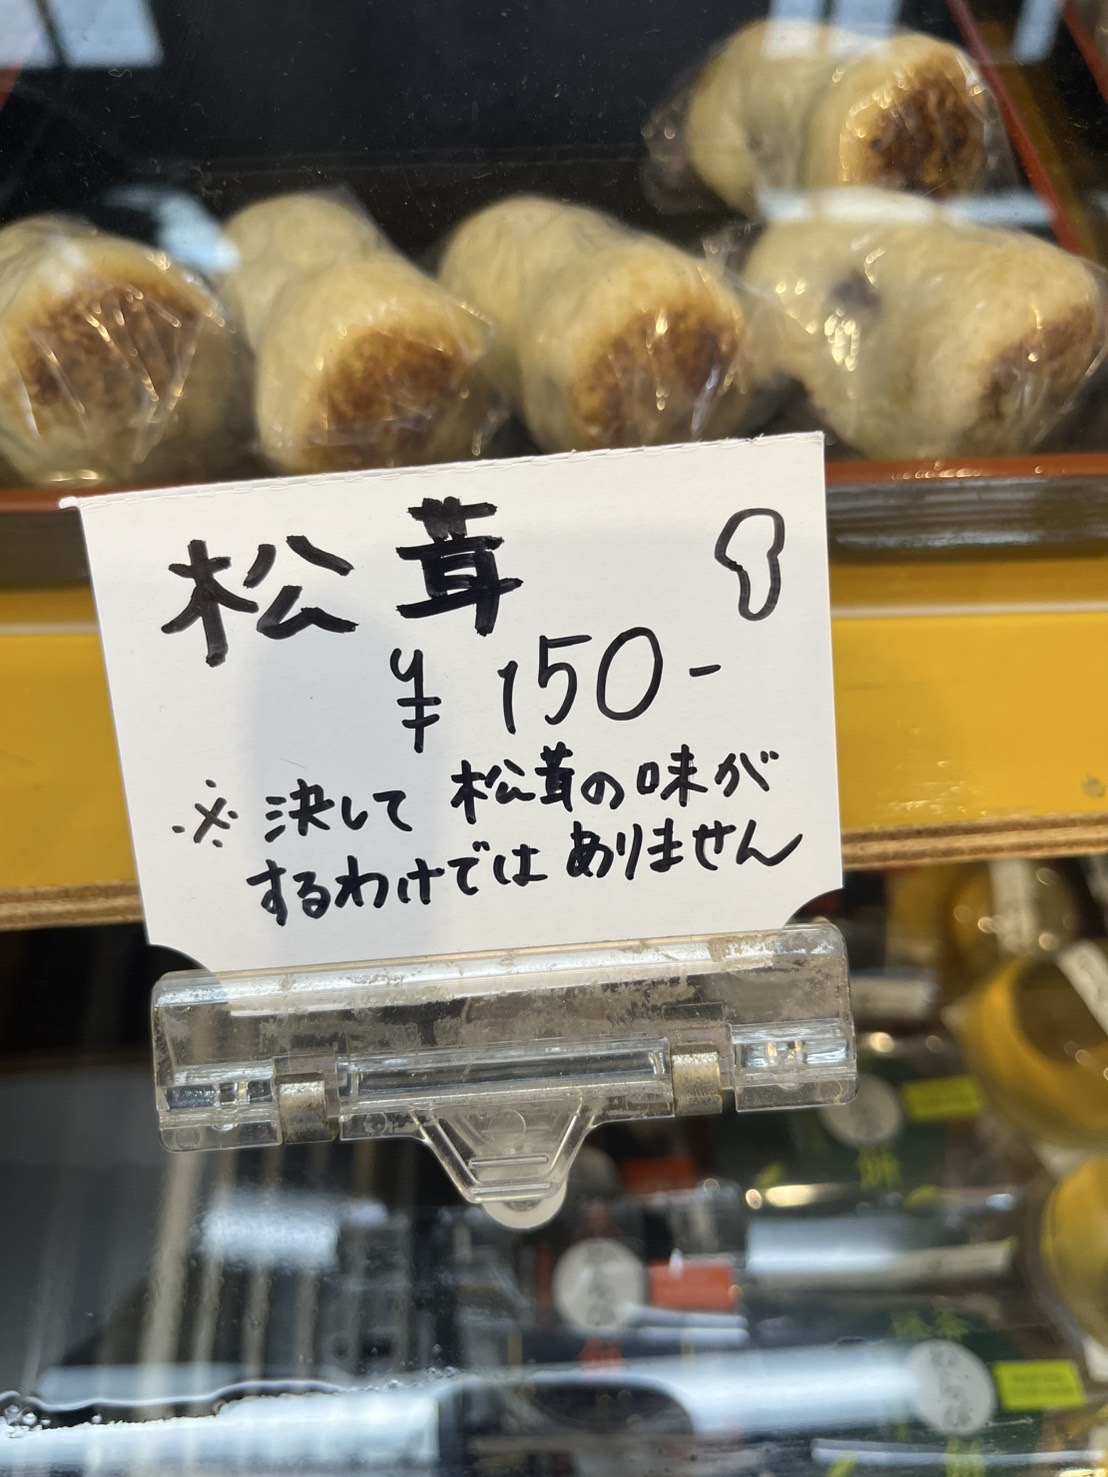 松茸
¥150-
※決して松茸の味が
するわけではありません